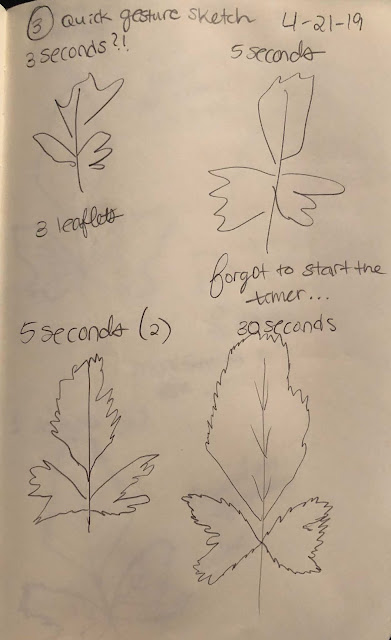 ③ Quick gesture sketch 4-21-19
3 seconds?!
5 seconds
3 leaflets
forgot to start the
timer...
5 seconds (2)
30 seconds